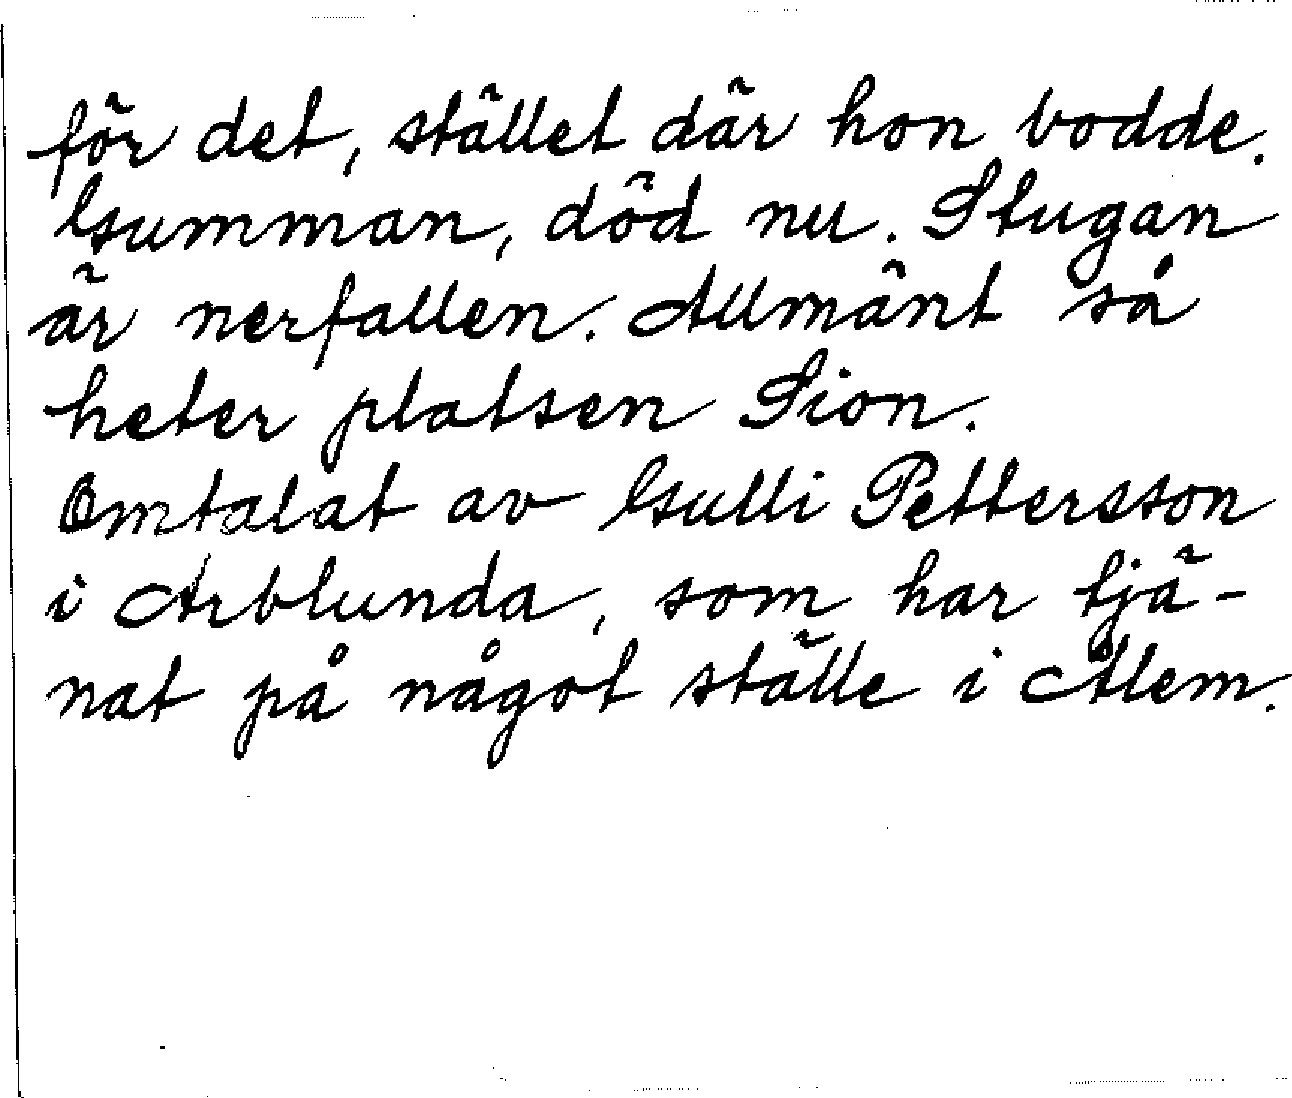 för det, stället där hon bodde.
Gumman, död nu. Stugan
är nerfallen. Allmänt så
heter platsen Sion.
Omtalat av Gulli Pettersson
i Arblunda, som har tjä-
nat på något ställe i Ålem.